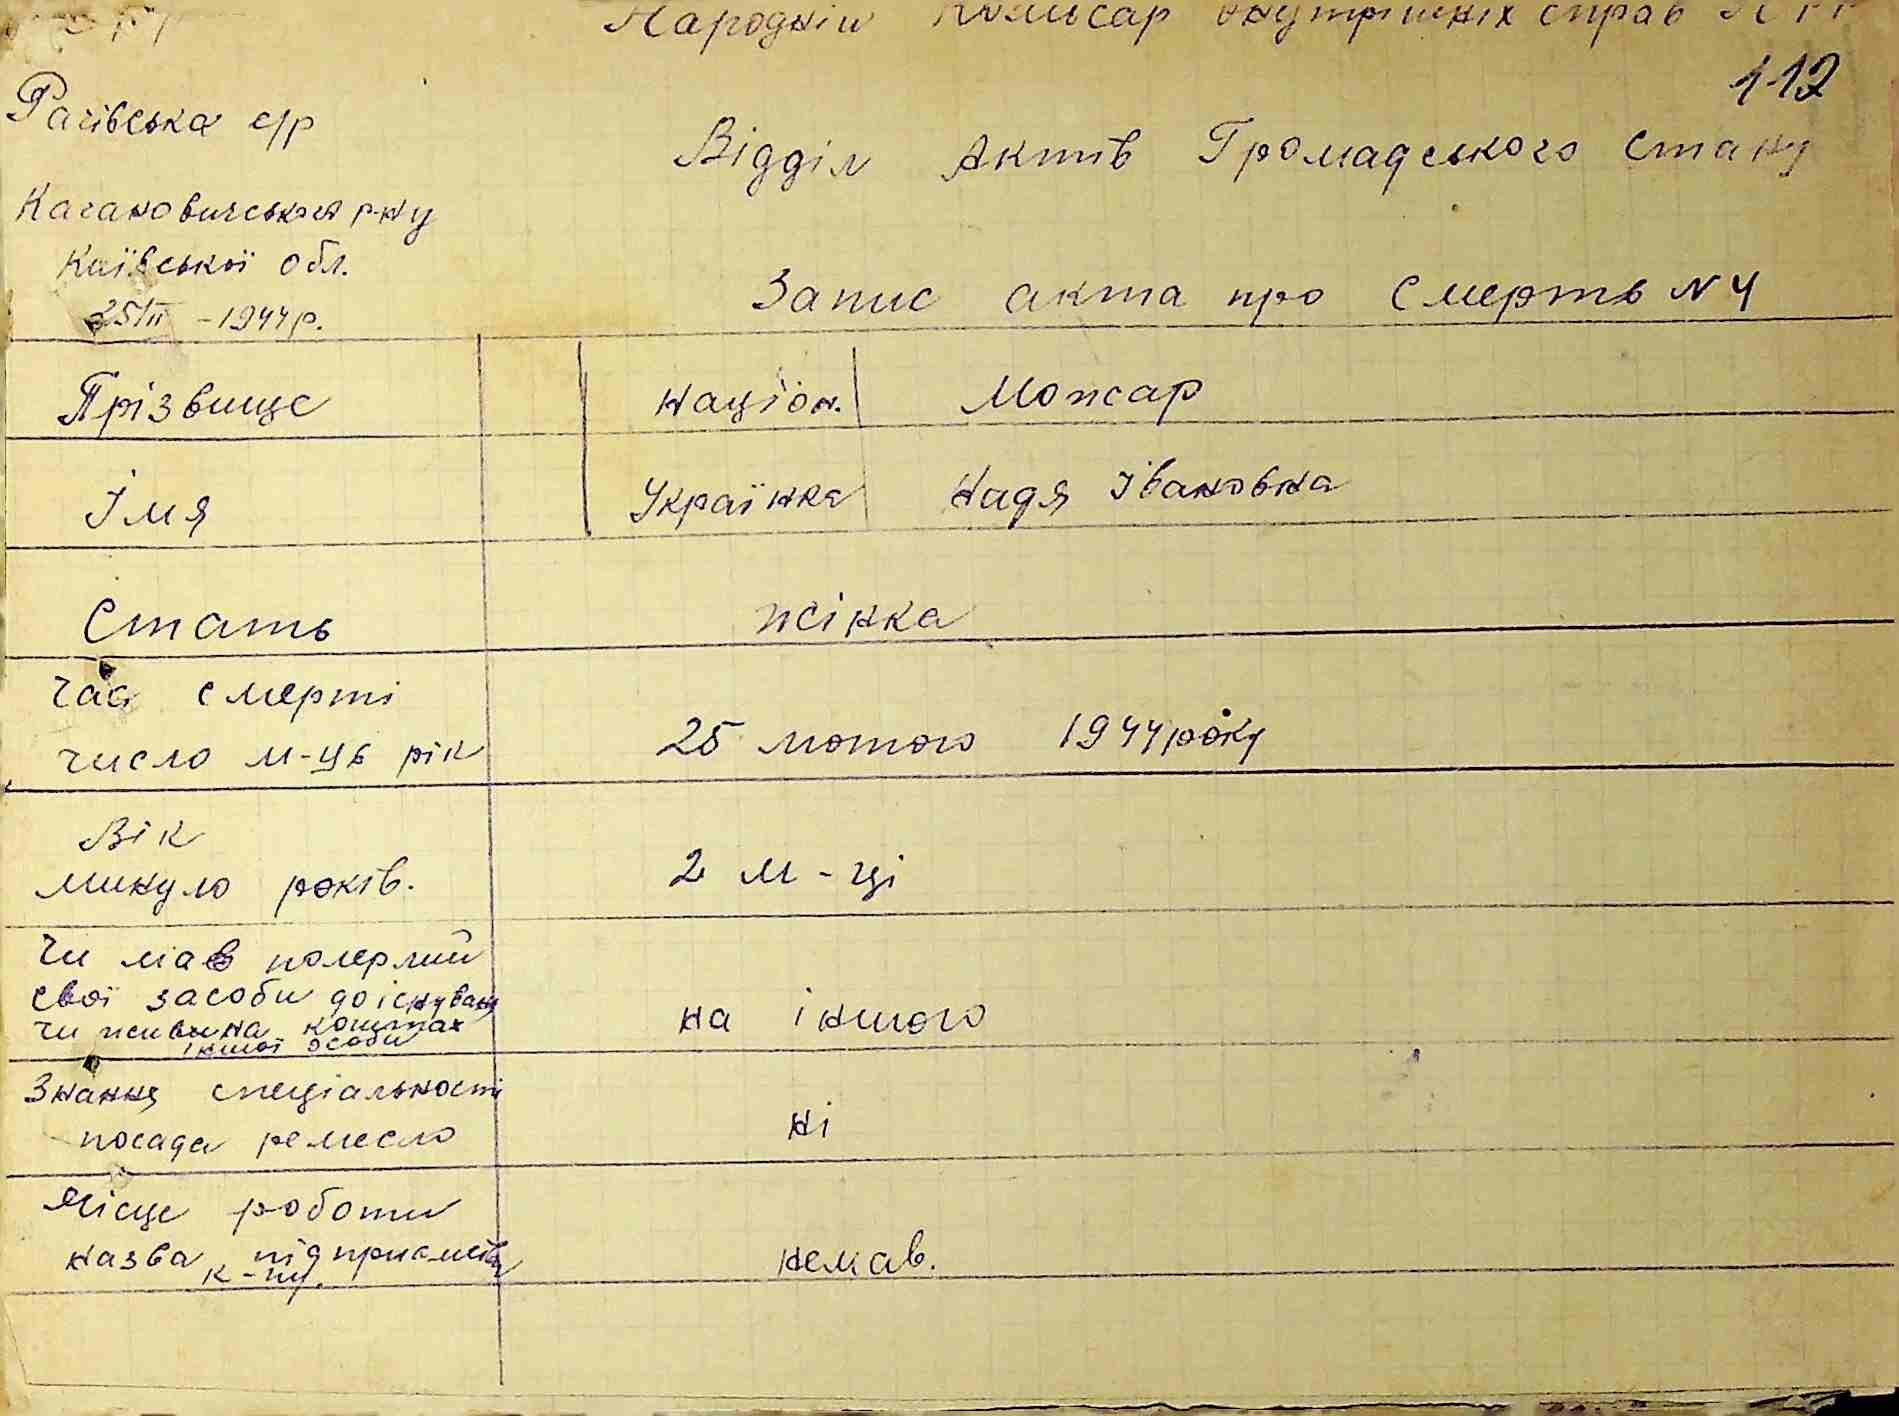 Народній Комисар внутрішніх справ
112
Рагівська с/р
Відділ Актів Громадського стану
Кагановичського р-ну
Київської обл.
25/II - 1944 р.
Запис акта про смерть N 4
Прізвище Націон. Можар
Імя Українка Надя Івановна
Стать жінка
Час смерті
число м-ць рік 25 лютого 1944 року
Вік
минуло років. 2 м-ці
Чи мав померлий
свої засоби до існування
чи жив на коштах
іншої особи на іншого
Знання спеціальності
посада ремесло ні
Місце роботи
назва підприємства немав.